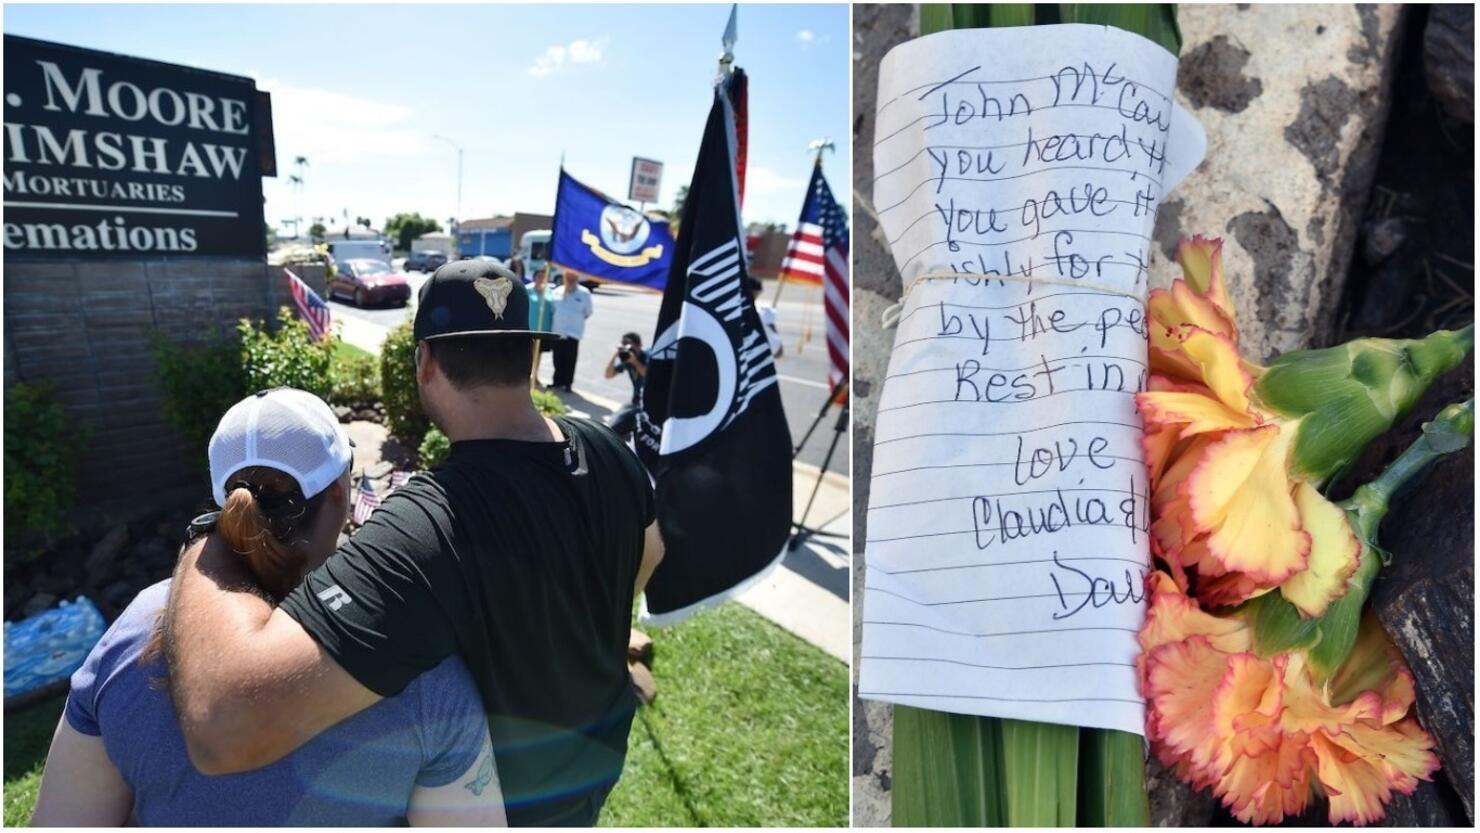 . MOORE
IMSHAW
MORTUARIES
emations
POW★MIA
R
John McCai
you heard
you gave it
ishly for
by the peo
Rest in
Love
Claudia &
Dav